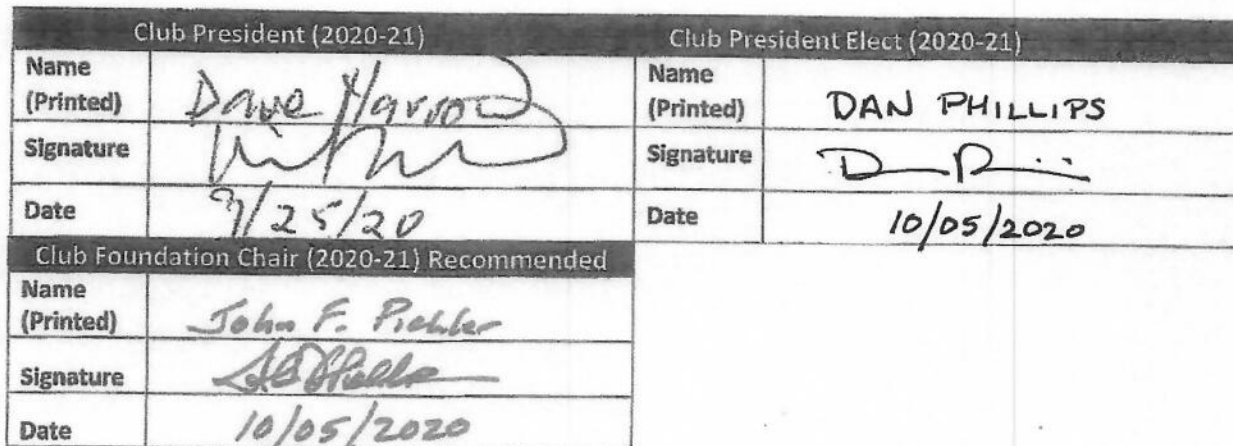 Club President (2020-21)
Name (Printed) Dave Harrod
Signature
Date 9/25/20
Club President Elect (2020-21)
Name (Printed) DAN PHILLIPS
Signature
Date 10/05/2020
Club Foundation Chair (2020-21) Recommended
Name (Printed) John F. Pichler
Signature
Date 10/05/2020